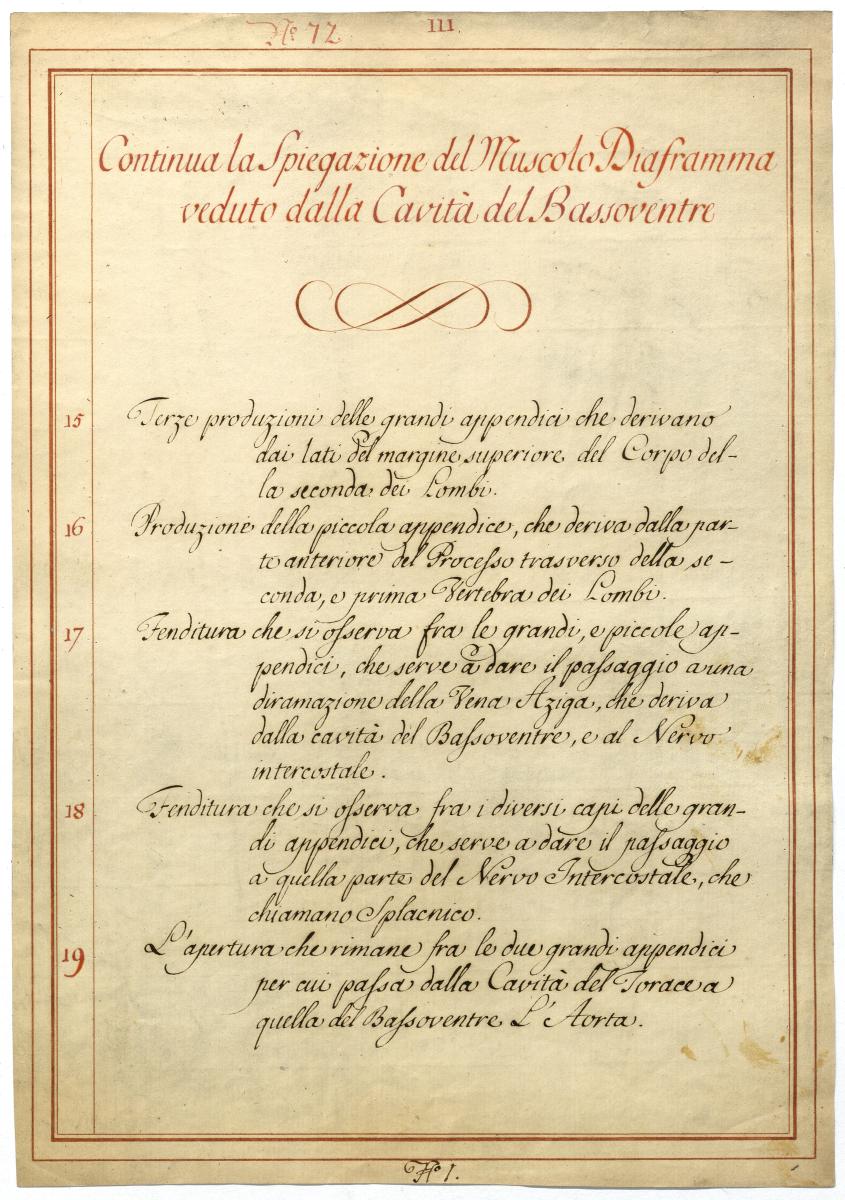 Nº 72
III
Continua la Spiegazione del Muscolo Diaframma
veduto dalla Cavità del Bassoventre
15 Terze produzioni delle grandi appendici che derivano
dai lati del margine superiore del Corpo del-
la seconda dei Lombi.
16 Produzione della piccola appendice, che deriva dalla par-
te anteriore del Processo trasverso della se-
conda, e prima Vertebra dei Lombi.
17 Fenditura che si osserva fra le grandi, e piccole ap-
pendici, che serve a dare il passaggio a una
diramazione della Vena Aziga, che deriva
dalla cavità del Bassoventre, e al Nervo
intercostale.
18 Fenditura che si osserva fra i diversi capi delle gran-
di appendici, che serve a dare il passaggio
a quella parte del Nervo Intercostale, che
chiamano Splacnico.
19 L'apertura che rimane fra le due grandi appendici
per cui passa dalla Cavità del Torace a
quella del Bassoventre L'Aorta.
Nº 1.